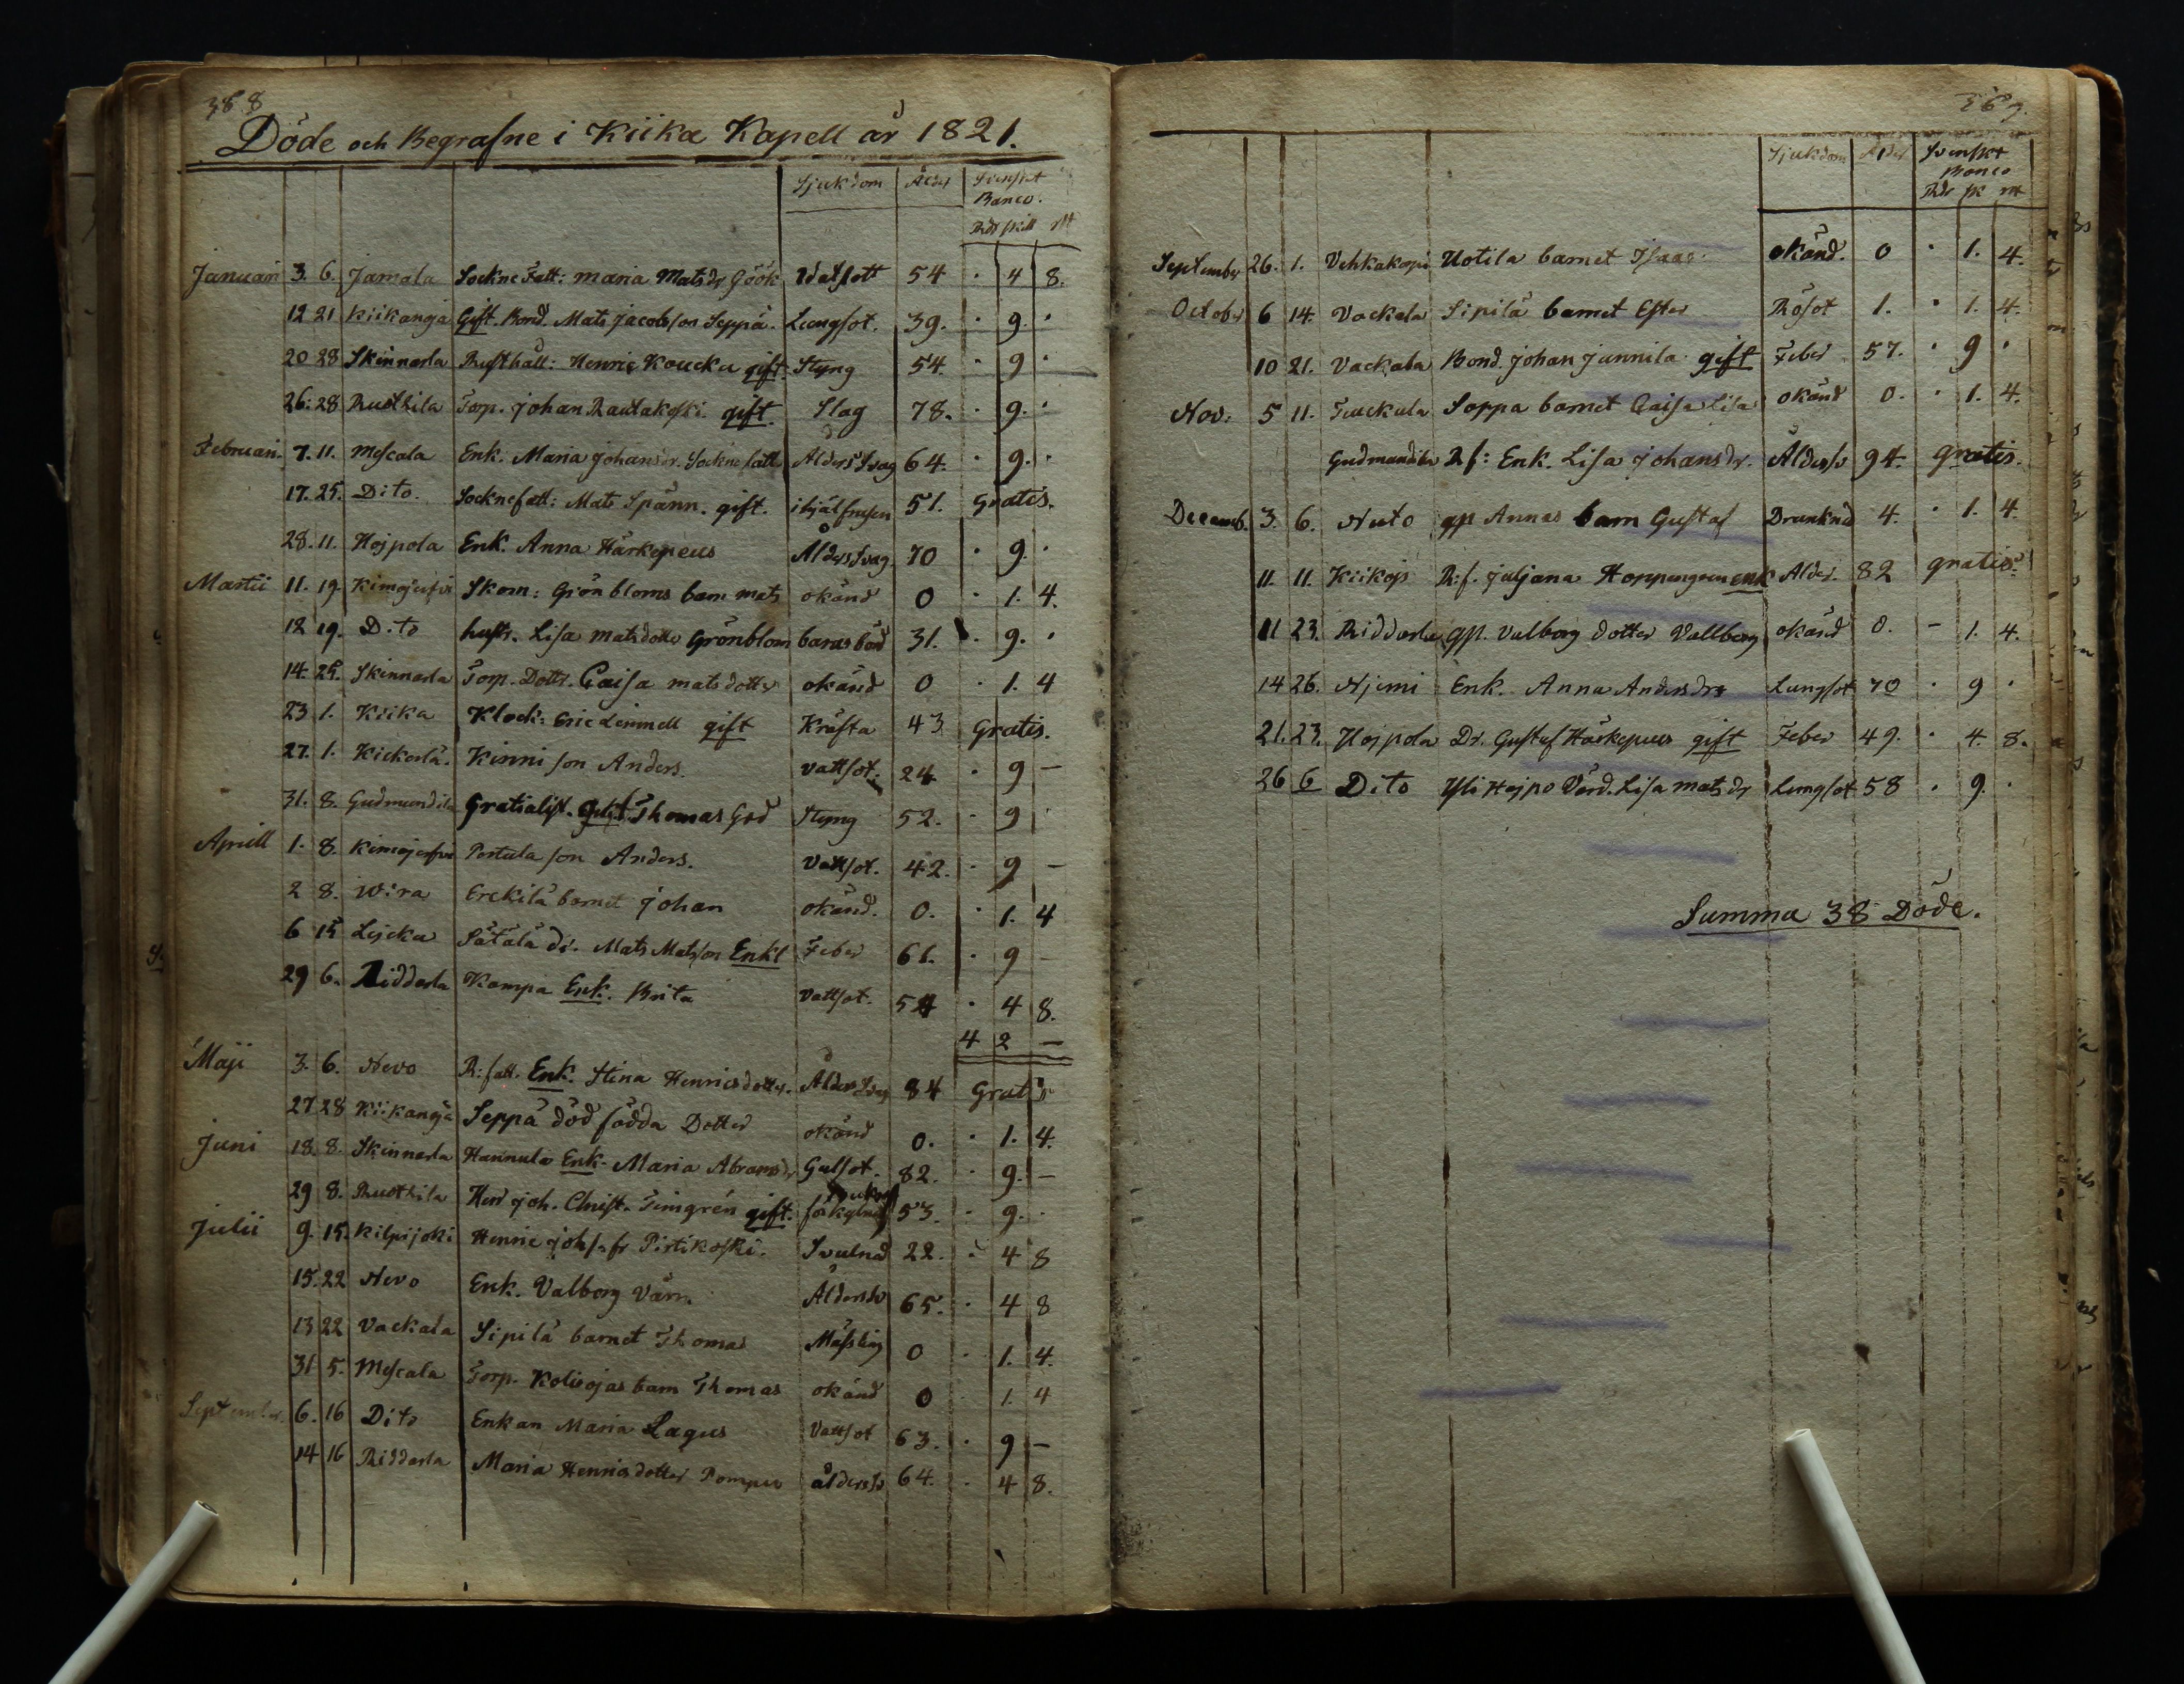 388
Döde och Begrafne i Kiika Kapell år 1821.
Sjukdom Ålder Svenskt Banco.
Rdr skill
Januari 3. 6. Jamala Sockne Fatt: Maria Matsdr Göök Watsott 54 · 4 8.
12 21 Kiikanoja Gift. Bond. Mats Jacobsson Seppä. Lungsot. 39. · 9. ·
20 28 Skinnarla Rusthåll: Henric Koucku gift. Styng 54. · 9 ·
26. 28 Ruothila Torp. Johan Rautakoski gift. Slag 78. · 9. ·
Februari. 7. 11. Mescala Enk. Maria Johansdr. Socknefatt. Åldersvag 64. · 9. ·
17. 25. Dito. Socknefatt: Mats Spänn. gift. ihjälfrusen 51. Gratis.
28. 11. Hojpola Enk. Anna Härkepeus Åldersvag. 70 · 9. ·
Martii 11. 19. Kimojerfvi Skom: Grönbloms barn Mats okänd 0 · 1. 4.
12 19. Dito hustr. Lisa Matsdotter Grönblom barasbörd 31. · 9. ·
14. 25. Skinnarla Torp. Dottr. Caisa Matsdotter okänd 0 · 1. 4
23 1. Kiika Klock: Eric Lemmell gift Kräfta 43 Gratis.
27. 1. Kickerlä. Kinni son Anders. Vattsot. 24 · 9 –
31. 8. Gudmundila Gratialist. Gift. Thomas God Styng 52. · 9
Aprill 1. 8. Kimojerfvi Pertula son Anders. Vattsot. 42. · 9 –
2 8. Wira Erckilä barnet Johan okänd. 0. · 1. 4
6 15 Lejcka Sätälä dr. Mats Matsson Enkl Feber 61. · 9 –
29 6. Ridderla Kampa Enk. Brita Vattsot. 54 · 4 8.
4 2 –
Maji 3. 6. Nevo R: fatt. Enk. Stina Henricsdotter. Åldersvag 84 Gratis
27 28 Kiikanoja Seppä dödfödda Dotter okänd 0. · 1. 4.
Juni 18. 8. Skinnarla Hannula Enk. Maria Abramsdr Gulsot. 82. · 9. –
29 8. Ruothila Herr Joh. Christ. Timgrén gift. 53. · 9. ·
Julii 9. 15. Kilpijoki Henric Pirtikoski. Svulnad 22. · 4 8
15. 22 Nevo Enk. Valborg Värn. Åldersv 65. · 4 8
13 22 Vackala Sipilä barnet Thomas Mässling 0 · 1. 4.
31 5. Mescala Torp. Koliojas barn Thomas okänd 0 1. 4
September. 6. 16 Dito Enkan Maria Lagus Vattsot 63. · 9 –
14 16 Ridderla Maria Henricsdotter Pompu åldersv 64. · 4 8.
369.
Sjukdom Ålder Svenskt Banco
Rdr sk rst
September 26. 1. Vehkakorpi Uotila barnet Isaac. okänd. 0 · 1. 4.
October 6 14. Vackala Sipilä barnet Ester Rösot 1. · 1. 4.
10 21. Vackala Bond. Johan Junnila gift Feber 57. · 9 ·
Nov: 5 11. Tuuckala Soppa barnet Caisa Lisa okänd 0. · 1. 4.
Gudmundila Rf: Enk. Lisa Johansdr. Åldersv 94. gratis.
Decemb. 3. 6. Nuto qp Annas barn Gustaf Drunknd 4. · 1. 4.
11. 11. Kiikojs R:f. Juljana Hoppengren enk Alder. 82 gratis.
11 23. Ridderla qp. Valborg dotter Vallborg okänd 0. – 1. 4.
14 26. Njemi Enk. Anna Andersdr Lungsot 70 · 9 ·
21. 23. Hojpola Dr. Gustaf Härkepeus gift Feber 49. · 4. 8.
26 6 Dito Yli Hojpo Värd. Lisa Matsdr Lungsot 58 · 9. ·
Summa 38 Döde.